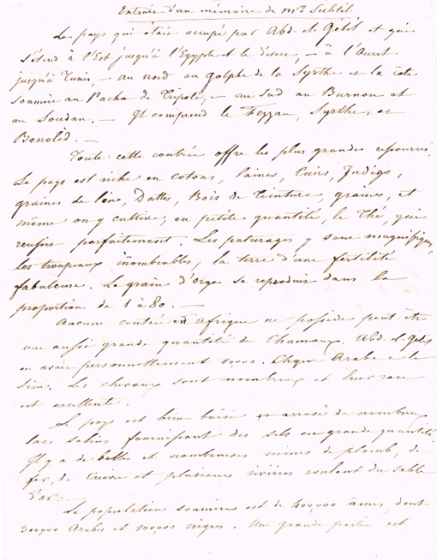 Extrait d'un mémoire de Mr Subtil
Le pays qui était occupé par Abd-el-Gélil et qui
s'étend à l'Est jusqu'à l'Egypte et le désert, — à l'Ouest
jusqu'à Tunis, — au nord au golphe de la Syrthe et la côte
soumise au Pacha de Tripoli, — au Sud au Burnou et
au Soudan. — Il comprend le Fezzan, Syrthe, et
Benolid. —
Toute cette contrée offre les plus grandes ressources.
Le pays est riche en cotons, laines, Cuirs, Indigo,
graines de lin, Dattes, Bois de Teinture, graines, et
même on y cultive, en petite quantité, le Thé, qui
réussit parfaitement. Les paturages y sont magnifiques,
les troupeaux inombrables, la terre d'une fertilité
fabuleuse. Le grain d'orge se reproduit dans la
proportion de 1 à 80. —
Aucune contrée d'Afrique ne possède peut être
une aussi grande quantité de Chameaux. Abd-el-Gélil
en avait personnellement Chaque Arabe a le
sien. Les chevaux sont nombreux et leur race
est excellente.
Le pays est bien boisé et arrosé de nombreux
lacs salés fournissant des sels en grande quantité
Il y a de belles et nombreuses mines de plomb, de
fer, de Cuivre et plusieurs rivières roulent du sable
d'or. —
La population soumise est de âmes, dont
300,000 Arabes et nègres. Une grande partie est